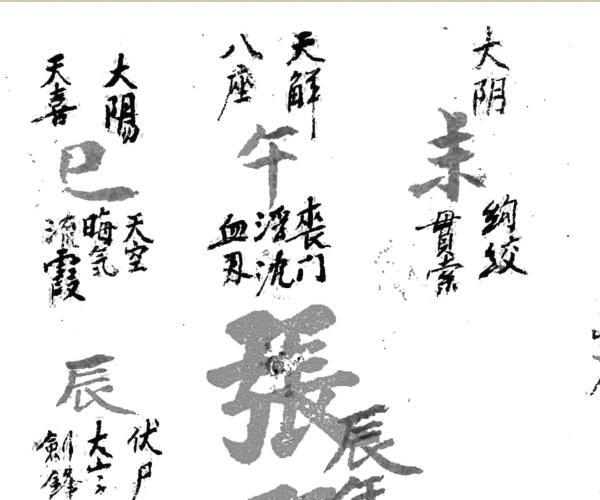 大阴
未
絢絞
貫索
天解
八座
午
喪门
浮沈
血刃
大陽
天喜
巳
天空
晦気
流霞
張
辰
辰
伏尸
劍鋒